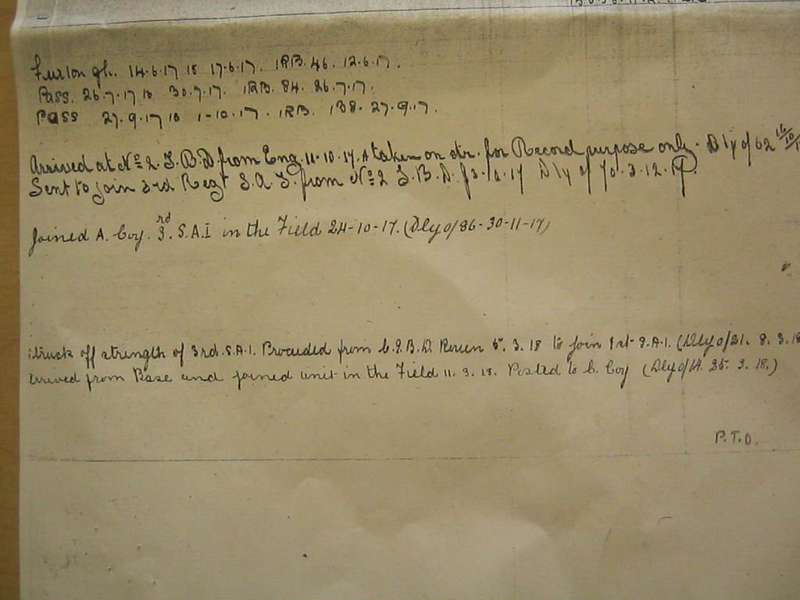 Furlough. 14.6.17 to 17.6.17. IRB. 46. 12.6.17.
Pass. 26.7.17 to 30.7.17. IRB. 84. 26.7.17.
Pass 27.9.17 to 1-10.17. IRB. 138. 27.9.17.
Arrived at No 2. I.B.D from Eng. 11.10.17. & taken on str. for Record purpose only. Dly o/ 62
Sent to join 3rd Regt S.A.I. from No 2 I.B.D. Dly o/ 70. 3.12.17.
Joined A. Coy. 3rd. S.A.I in the Field 24-10-17. (Dly o/86-30-11-17)
Struck off strength of 3rd. S.A.I. Proceeded from I.B.D. Rouen 5. 3. 18 to join 1st S.A.I. (Dly o/21. 8. 3. 18
Arrived from Base and joined unit in the Field 11. 3. 18. Posted to C. Coy (Dly o/14. 25. 3. 18.)
P.T.O.